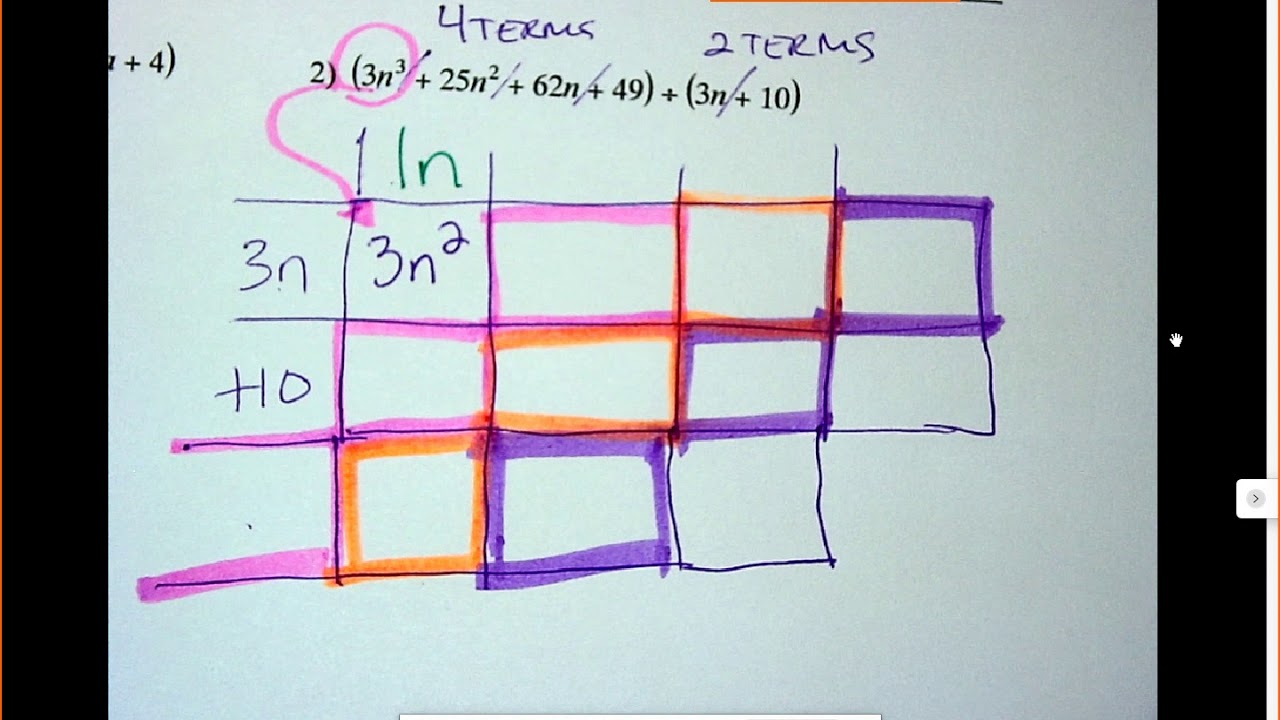 4 TERMS
2 TERMS
+ 4)
2) (3n³ + 25n² + 62n + 49) ÷ (3n + 10)
1n
3n
3n²
+10